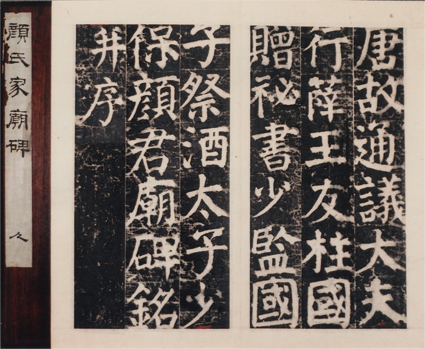 顏氏家廟碑
唐故通議大夫
行薛王友柱國
贈祕書少監國
子祭酒太子少
保顏君廟碑銘
并序